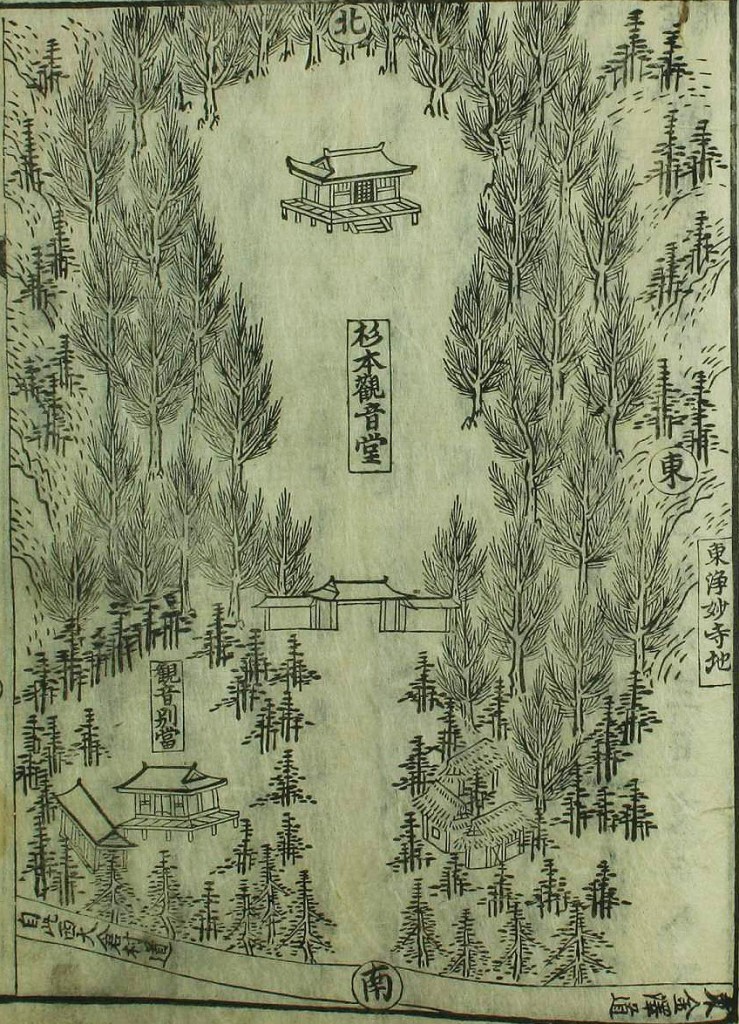 北
杉本觀音堂
東
東淨妙寺地
觀音別當
自此西大倉村道
南
東金澤道